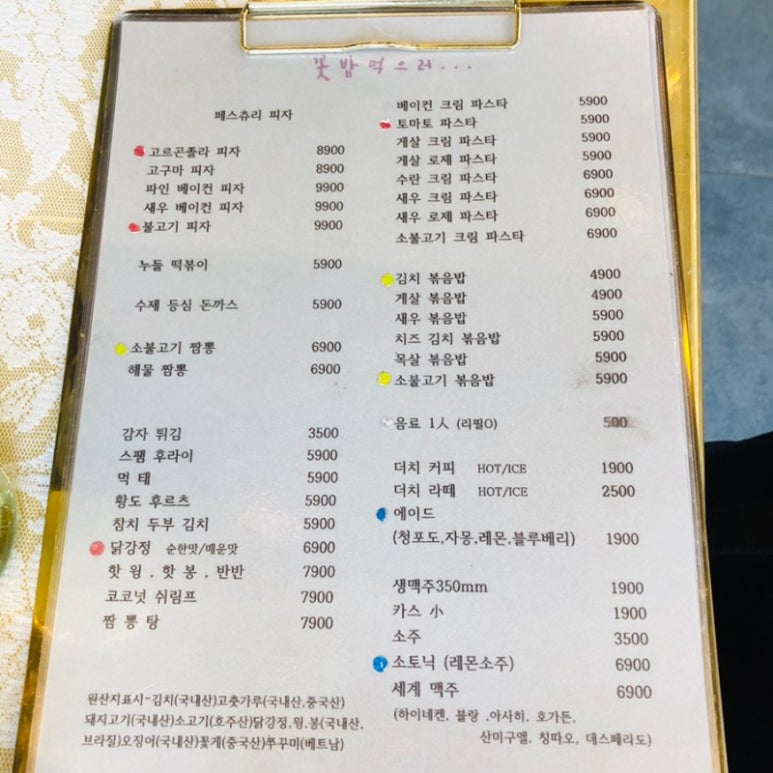 꽃밥먹으러...
페스츄리 피자
고르곤졸라 피자 8900
고구마 피자 8900
파인 베이컨 피자 9900
새우 베이컨 피자 9900
불고기 피자 9900
누들 떡볶이 5900
수제 등심 돈까스 5900
소불고기 짬뽕 6900
해물 짬뽕 6900
감자 튀김 3500
스팸 후라이 5900
먹 태 5900
황도 후르츠 5900
참치 두부 김치 5900
닭강정 순한맛/매운맛 6900
핫 윙 , 핫 봉 , 반반 7900
코코넛 쉬림프 7900
짬 뽕 탕 7900
원산지표시-김치(국내산)고춧가루(국내산,중국산)
돼지고기(국내산)소고기(호주산)닭강정,윙,봉(국내산,
브라질)오징어(국내산)꽃게(중국산)쭈꾸미(베트남)
베이컨 크림 파스타 5900
토마토 파스타 5900
게살 크림 파스타 5900
게살 로제 파스타 5900
수란 크림 파스타 6900
새우 크림 파스타 6900
새우 로제 파스타 6900
소불고기 크림 파스타 6900
김치 볶음밥 4900
게살 볶음밥 4900
새우 볶음밥 5900
치즈 김치 볶음밥 5900
목살 볶음밥 5900
소불고기 볶음밥 5900
음료 1人 (리필O) 500
더치 커피 HOT/ICE 1900
더치 라떼 HOT/ICE 2500
에이드
(청포도,자몽,레몬,블루베리) 1900
생맥주350mm 1900
카스 小 1900
소주 3500
소토닉 (레몬소주) 6900
세계 맥주 6900
(하이네켄, 블랑 ,아사히, 호가든,
산미구엘, 칭따오, 데스페라도)